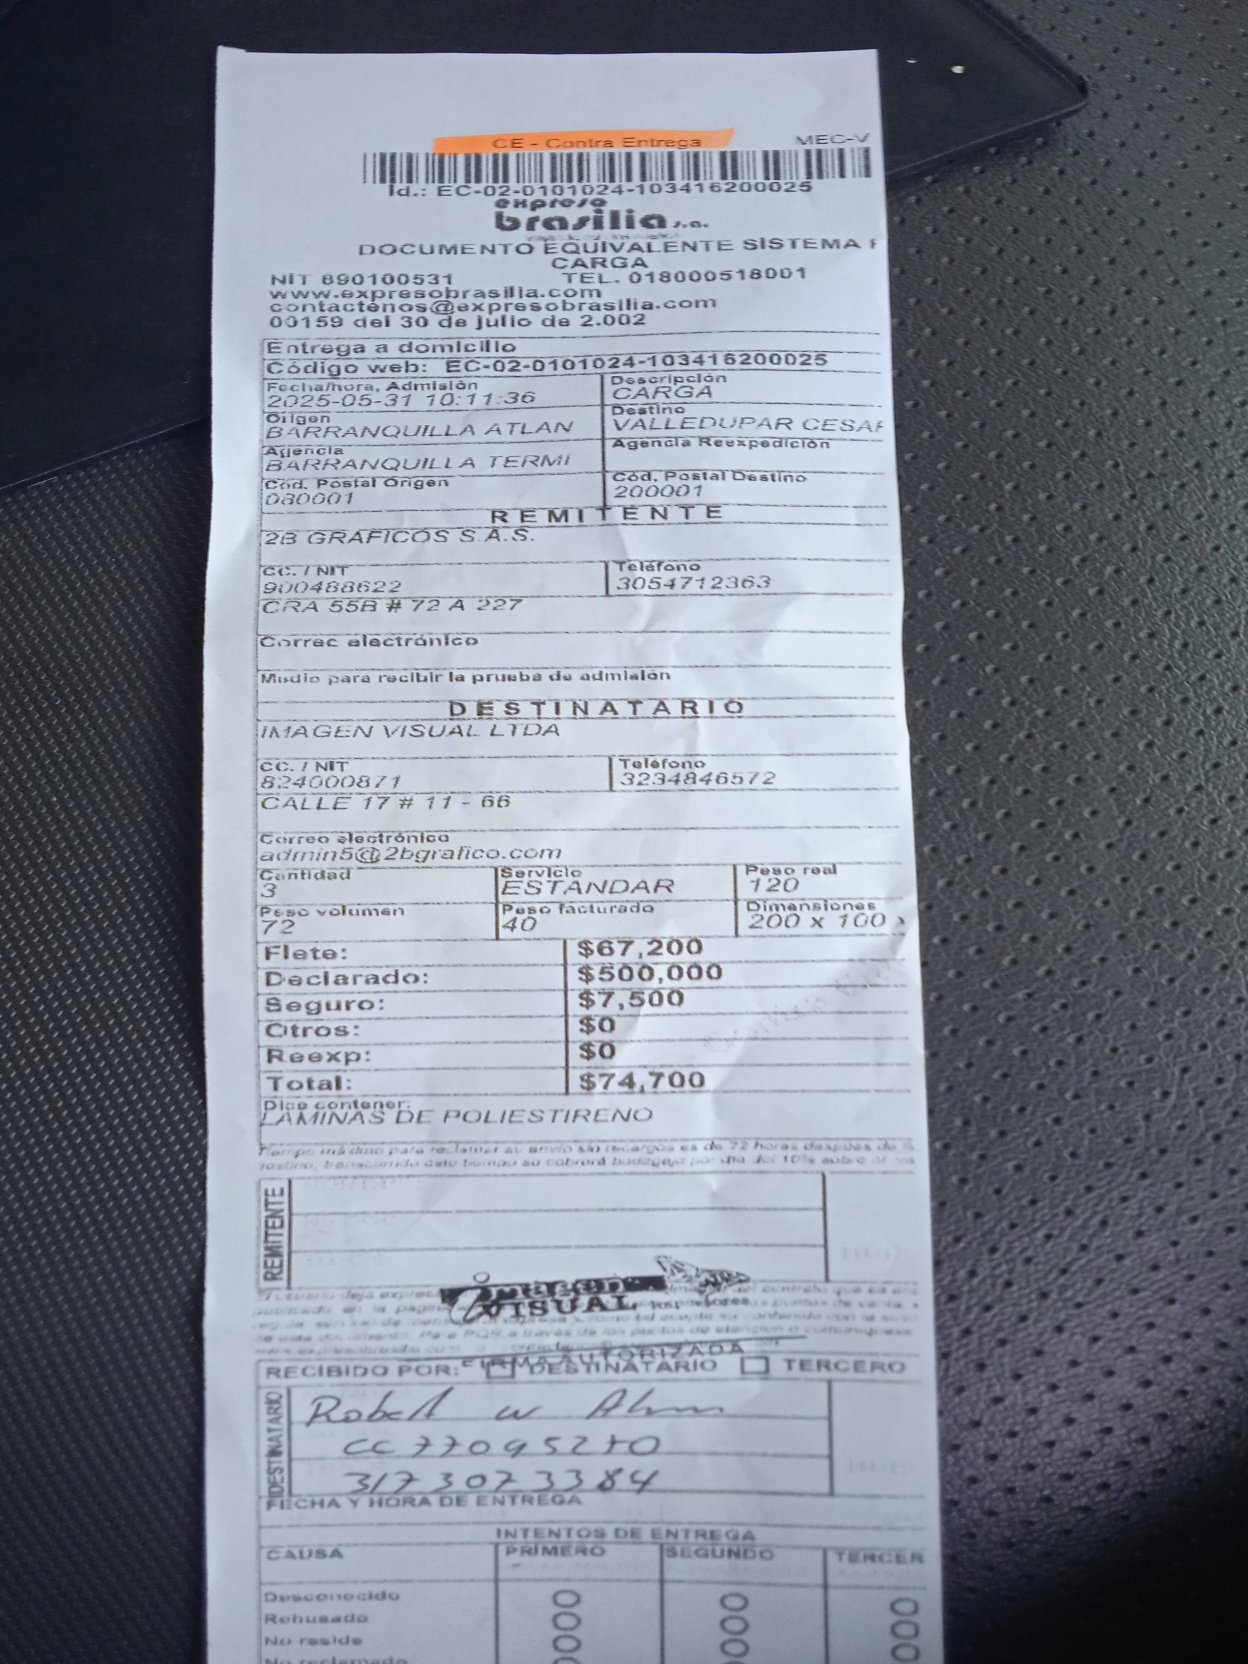 CE - Contra Entrega
MEC-V
Id.: EC-02-0101024-103416200025
expreso
brasilia s.a.
DOCUMENTO EQUIVALENTE SISTEMA
CARGA
NIT 890100531 TEL. 018000518001
www.expresobrasilia.com
contactenos@expresobrasilia.com
00159 del 30 de julio de 2.002
Entrega a domicilio
Código web: EC-02-0101024-103416200025
Fecha/hora, Admisión Descripción
2025-05-31 10:11:36 CARGA
Origen Destino
BARRANQUILLA ATLAN VALLEDUPAR CESAR
Agencia Agencia Reexpedición
BARRANQUILLA TERMI
Cód. Postal Origen Cód. Postal Destino
080001 200001
REMITENTE
2B GRAFICOS S.A.S.
CC. / NIT Teléfono
900488622 3054712363
CRA 55B # 72 A 227
Correo electrónico
Medio para recibir la prueba de admisión
DESTINATARIO
IMAGEN VISUAL LTDA
CC. / NIT Teléfono
824000871 3234846572
CALLE 17 # 11 - 66
Correo electrónico
admin5@2bgrafico.com
Cantidad Servicio Peso real
3 ESTANDAR 120
Peso volumen Peso facturado Dimensiones
72 40 200 x 100 x
Flete: $67,200
Declarado: $500,000
Seguro: $7,500
Otros: $0
Reexp: $0
Total: $74,700
Dice contener:
LAMINAS DE POLIESTIRENO
Tiempo máximo para reclamar su envío sin recargos es de 72 horas después de
destino, transcurrido éste tiempo se cobrará bodegaje por día del 10% sobre el
REMITENTE
imagen
VISUAL Impresores
FIRMA AUTORIZADA
RECIBIDO POR: DESTINATARIO TERCERO
DESTINATARIO
Robert w
CC 77095270
3173073384
FECHA Y HORA DE ENTREGA
INTENTOS DE ENTREGA
CAUSA PRIMERO SEGUNDO TERCER
Desconocido
Rehusado
No reside
No reclamado